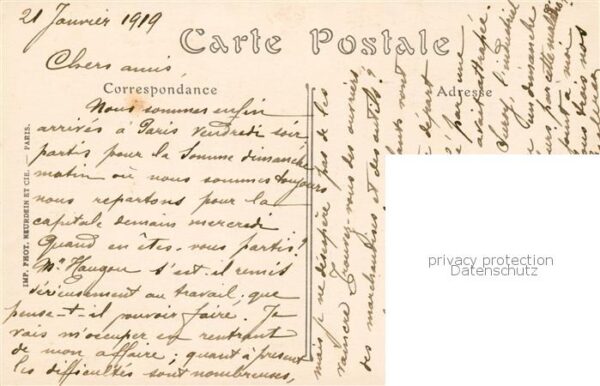 21 Janvier 1919
Carte Postale
Chers amis,
Correspondance
Adresse
Nous sommes enfin
arrivés à Paris vendredi soir
partis pour la Somme dimanche
matin où nous sommes toujours
nous repartons pour la
capitale demain mercredi
Quand en êtes-vous partis?
Mr Haugou s'est-il remis
sérieusement au travail, que
pense-t-il pouvoir faire. Je
vais m'occuper en rentrant
de mon affaire; quant à présent
les difficultés sont nombreuses,
mais je ne désespère pas de les
vaincre. Trouvez-vous des ouvriers
des marchandises et des outils?
départ
par une
avait attrapée.
chez l'industriel
dimanche
cette
à moi
nous
IMP. PHOT. NEURDEIN ET CIE. — PARIS.
privacy protection
Datenschutz